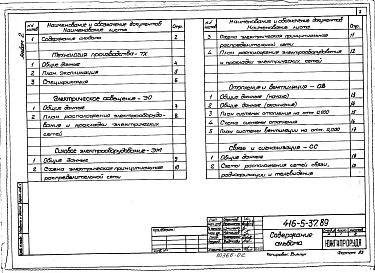 Альбом 2
№№ п/п
Наименование и обозначение документов
Наименование листа
Стр.
1 Содержание альбома 2
Технология производства - ТХ
1 Общие данные 4
2 План экспликация 5
3 Спецификация 6
Электрическое освещение - ЭО
1 Общие данные 7
2 План расположения электрооборудо- 8
вания и прокладки электрических
сетей
Силовое электрооборудование - ЭМ
1 Общие данные 9
2 Схема электрическая принципиальная 10
распределительной сети
№№ п/п
Наименование и обозначение документов
Наименование листа
Стр.
3 Схема электрическая принципиальная 11
распределительной сети
4 План расположения электрооборудования 12
и прокладки электрических сетей
Отопление и вентиляция - ОВ
1 Общие данные (начало) 13
2 Общие данные (окончание) 14
3 План системы отопления на отм. 0.000 15
4 Схема системы отопления 16
5 План системы вентиляции на отм. 0.000 17
Связь и сигнализация - СС
1 Общие данные 18
2 Схемы расположения сетей связи, 19
радиофикации и телевидения
416-5-37.89
Содержание
альбома
ЮЖГИПРОРУДА
10366-02
Копировал
Формат А3